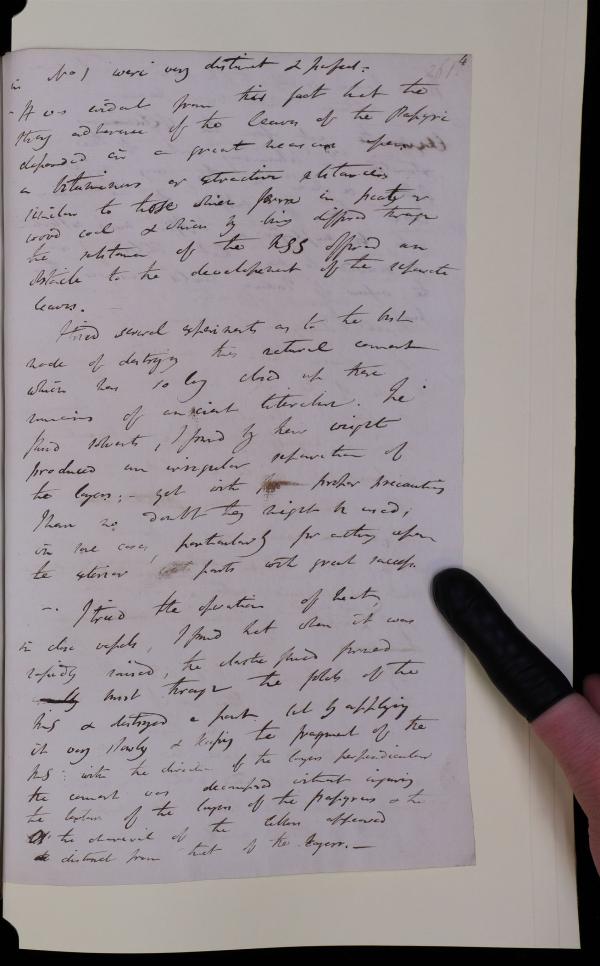 in No 1 were very distinct & perfect:
4
- It was evident from this fact that the
strong adherence of the leaves of the Papyri
depended in a great measure upon
a bituminous or extractive substances
similar to those which form in peat &
wood coal & which by being diffused through
the substance of the MSS offered an
obstacle to the developement of the separate
leaves. -
I tried several experiments as to the best
mode of destroying this natural cement
which has so long closed up these
remains of ancient literature. The
fluid solvents, I found by their weight
produced an irregular separation of
the layers; - yet with proper precautions
I have no doubt they might be used;
in some cases, particularly for acting upon
the exterior parts with great success.
-. I tried the operation of heat,
in close vessels, I found that when it was
rapidly raised, the elastic fluid forced
must through the folds of the
MS & destroyed a part but by applying
it very slowly & keeping the fragment of the
MS: with the direction of the layers perpendicular
the cement was decomposed without injuring
the texture of the layers of the papyrus & the
the charcoal of the letters appeared
distinct from that of the layers. -